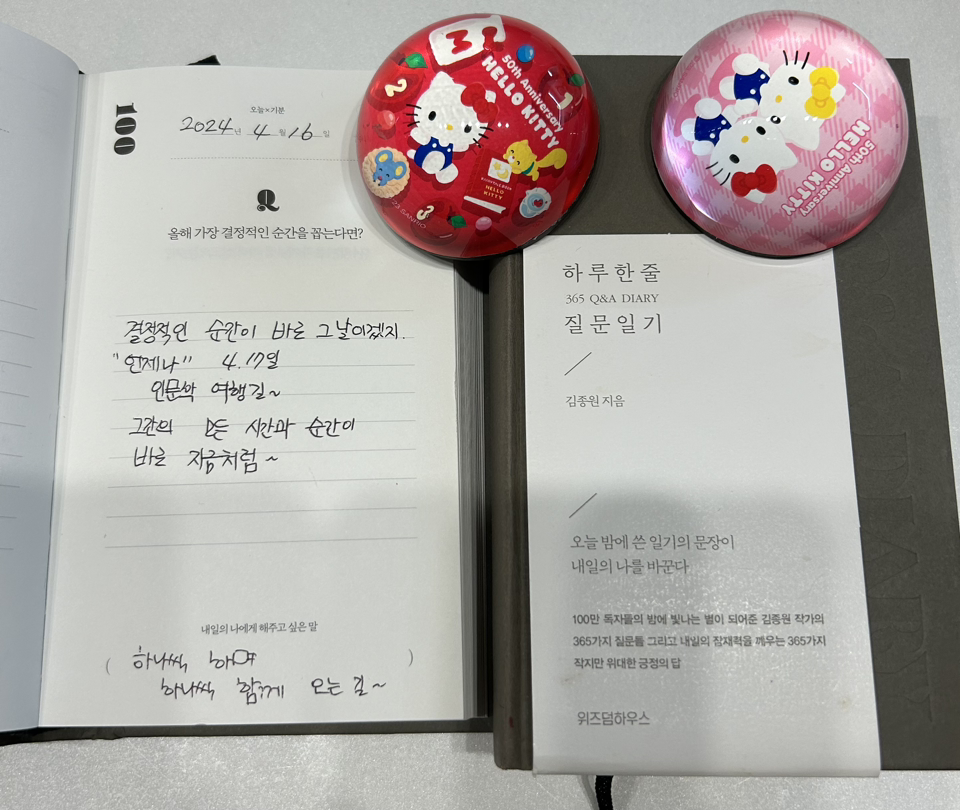 100
오늘×기분
2024년 4월 16일
Q
올해 가장 결정적인 순간을 꼽는다면?
결정적인 순간이 바로 그날이겠지.
"언제나" 4.17일
인문학 여행길~
그간의 모든 시간과 순간이
바로 지금처럼~
내일의 나에게 해주고 싶은 말
( 하나씩 하여 )
하나씩 함께 오는 길~
50th Anniversary
HELLO KITTY
1
2
3
HELLO
KITTY
50th Anniversary
HELLO KITTY
하루한줄
365 Q&A DIARY
질문일기
김종원 지음
오늘 밤에 쓴 일기의 문장이
내일의 나를 바꾼다
100만 독자들의 밤에 빛나는 별이 되어준 김종원 작가의
365가지 질문들 그리고 내일의 잠재력을 깨우는 365가지
작지만 위대한 긍정의 답
위즈덤하우스